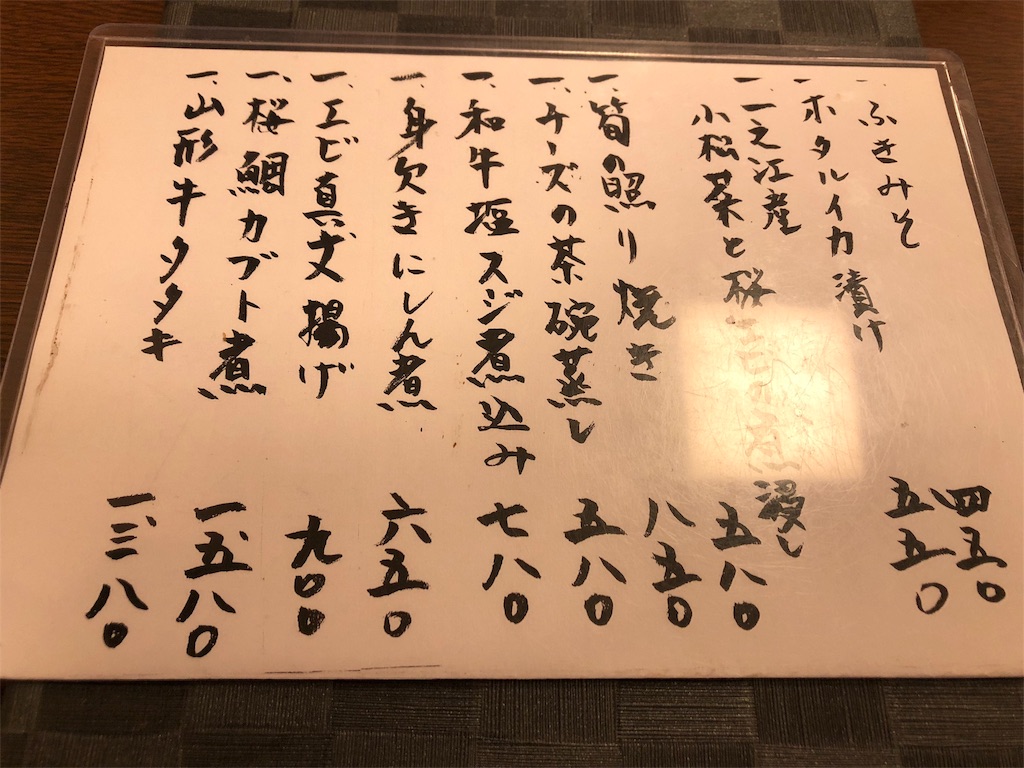 ふきみそ 四五〇
一、ホタルイカ漬け 五五〇
一、一之江産
小松菜と桜 煮浸し 五八〇
一、筍の照り焼き 八五〇
一、チーズの茶碗蒸し 五八〇
一、和牛塩スジ煮込み 七八〇
一、身欠きにしん煮 六五〇
一、エビ真丈揚げ 九〇〇
一、桜鯛カブト煮 一、五八〇
一、山形牛タタキ 一、三八〇